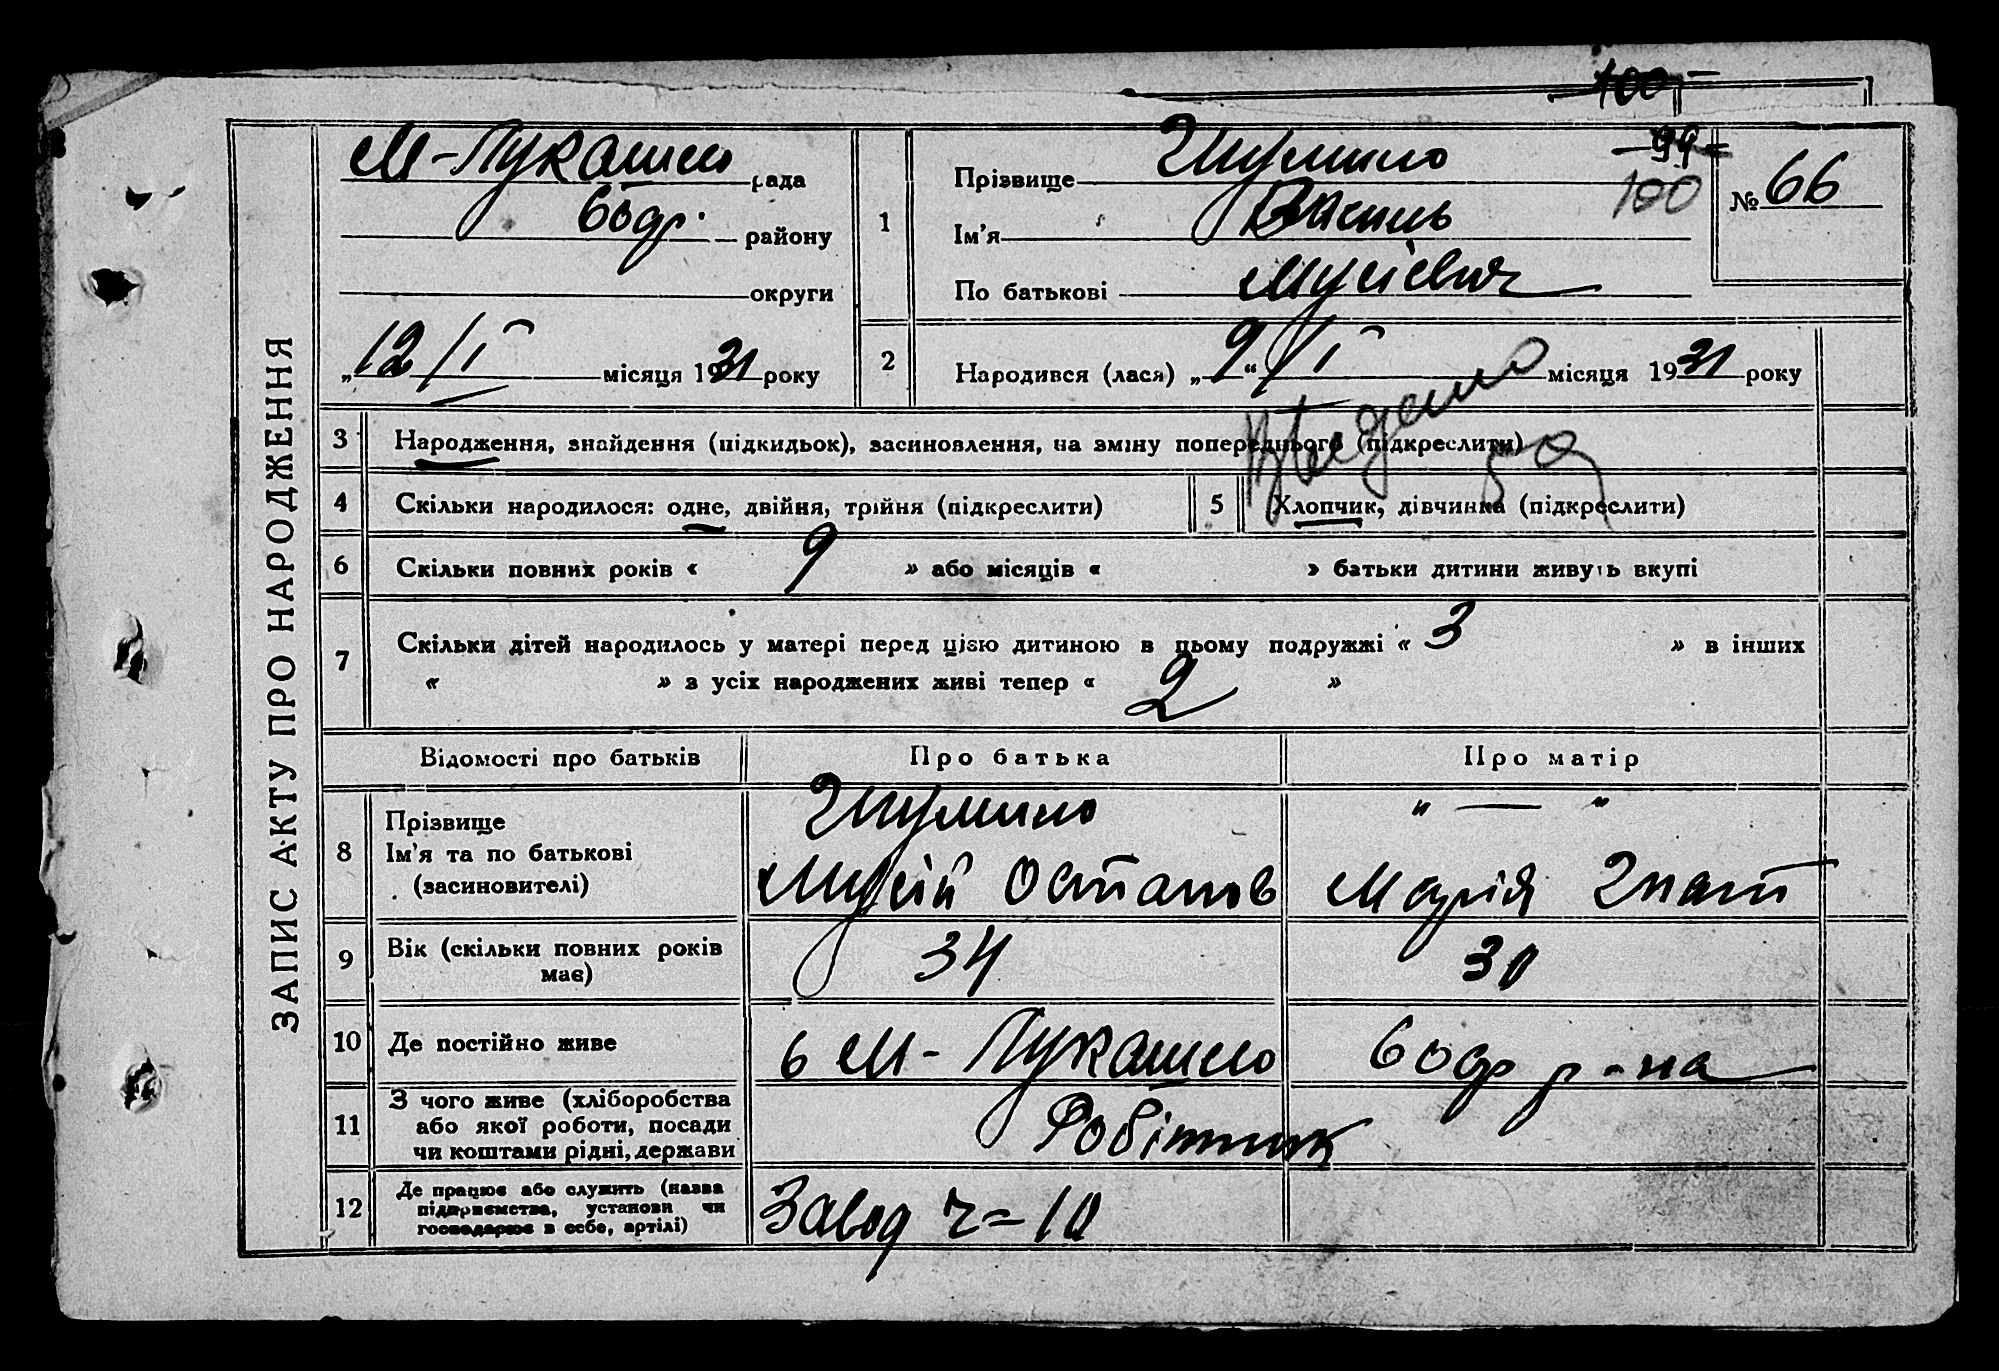 100
99
100
ЗАПИС АКТУ ПРО НАРОДЖЕННЯ
М-Лукашево рада
району
округи
„12/I місяця 1931 року
1
Прізвище
Ім'я Василь
По батькові Мусієвич
№ 66
2
Народився (лася) „9“/I місяця 1931 року
3 Народження, знайдення (підкидьок), засиновлення, на зміну попереднього (підкреслити)
4 Скільки народилося: одне, двійня, трійня (підкреслити)
5 Хлопчик, дівчинка (підкреслити)
6 Скільки повних років « 9 » або місяців « » батьки дитини живуть вкупі
7 Скільки дітей народилось у матері перед цією дитиною в цьому подружжі « 3 » в інших
« » з усіх народжених живі тепер « 2 »
Відомості про батьків Про батька Про матір
8 Прізвище
Ім'я та по батькові
(засиновителі)
" — "
Мусій Остапов Марія Гнат
9 Вік (скільки повних років
має)
34 30
10 Де постійно живе
в М-Лукашево р-на
11 З чого живе (хліборобства
або якої роботи, посади
чи коштами рідні, держави
Робітник
12 Де працює або служить (назва
підприємства, установи чи
господарює в себе, артілі)
Завод ч=10